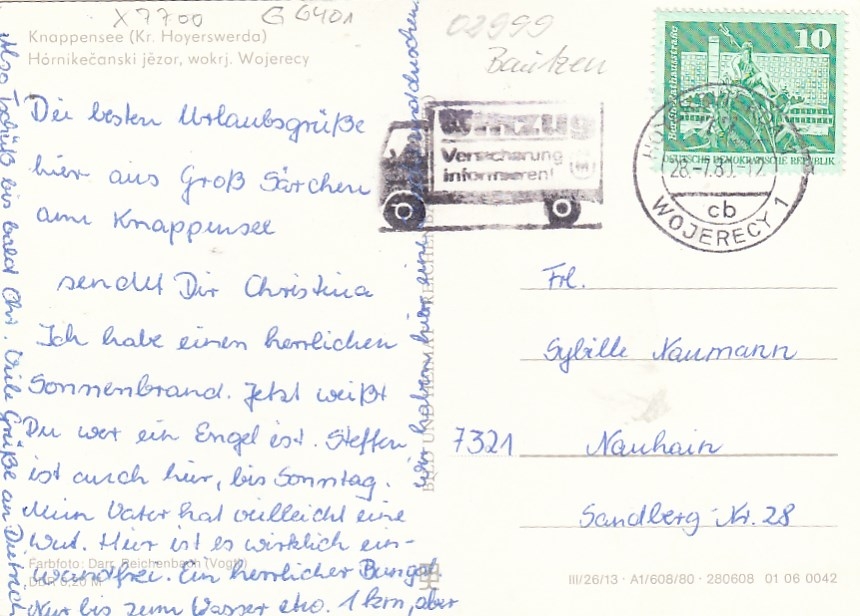 X 7700 G G401
02999
Bautzen
Knappensee (Kr. Hoyerswerda)
Hórnikečanski jězor, wokrj. Wojerecy
Die besten Urlaubsgrüße
hier aus Groß Särchen
am Knappensee
sendet Dir Christina
Ich habe einen herrlichen
Sonnenbrand. Jetzt weißt
Du wer ein Engel ist. Steffen
ist auch hier, bis Sonntag.
Mein Vater hat vielleicht eine
Wut. Hier ist es wirklich ein-
wandfrei. Ein herrlicher Bungal
Nur bis zum Wasser etw. 1 km, aber
wir haben hier eine
Also Tschüß bis bald Chr. Viele Grüße an Dietmar
Farbfoto: Darr, Reichenbach (Vogtl)
BILD UND HEIMAT REICHENBACH
Umzug
Versicherung
informieren!
10
DEUTSCHE DEMOKRATISCHE REPUBLIK
28.-7.80.-12
cb
WOJERECY 1
Frl.
Sybille Naumann
7321 Nauhain
Sandberg Nr. 28
III/26/13 · A1/608/80 · 280608 01 06 0042